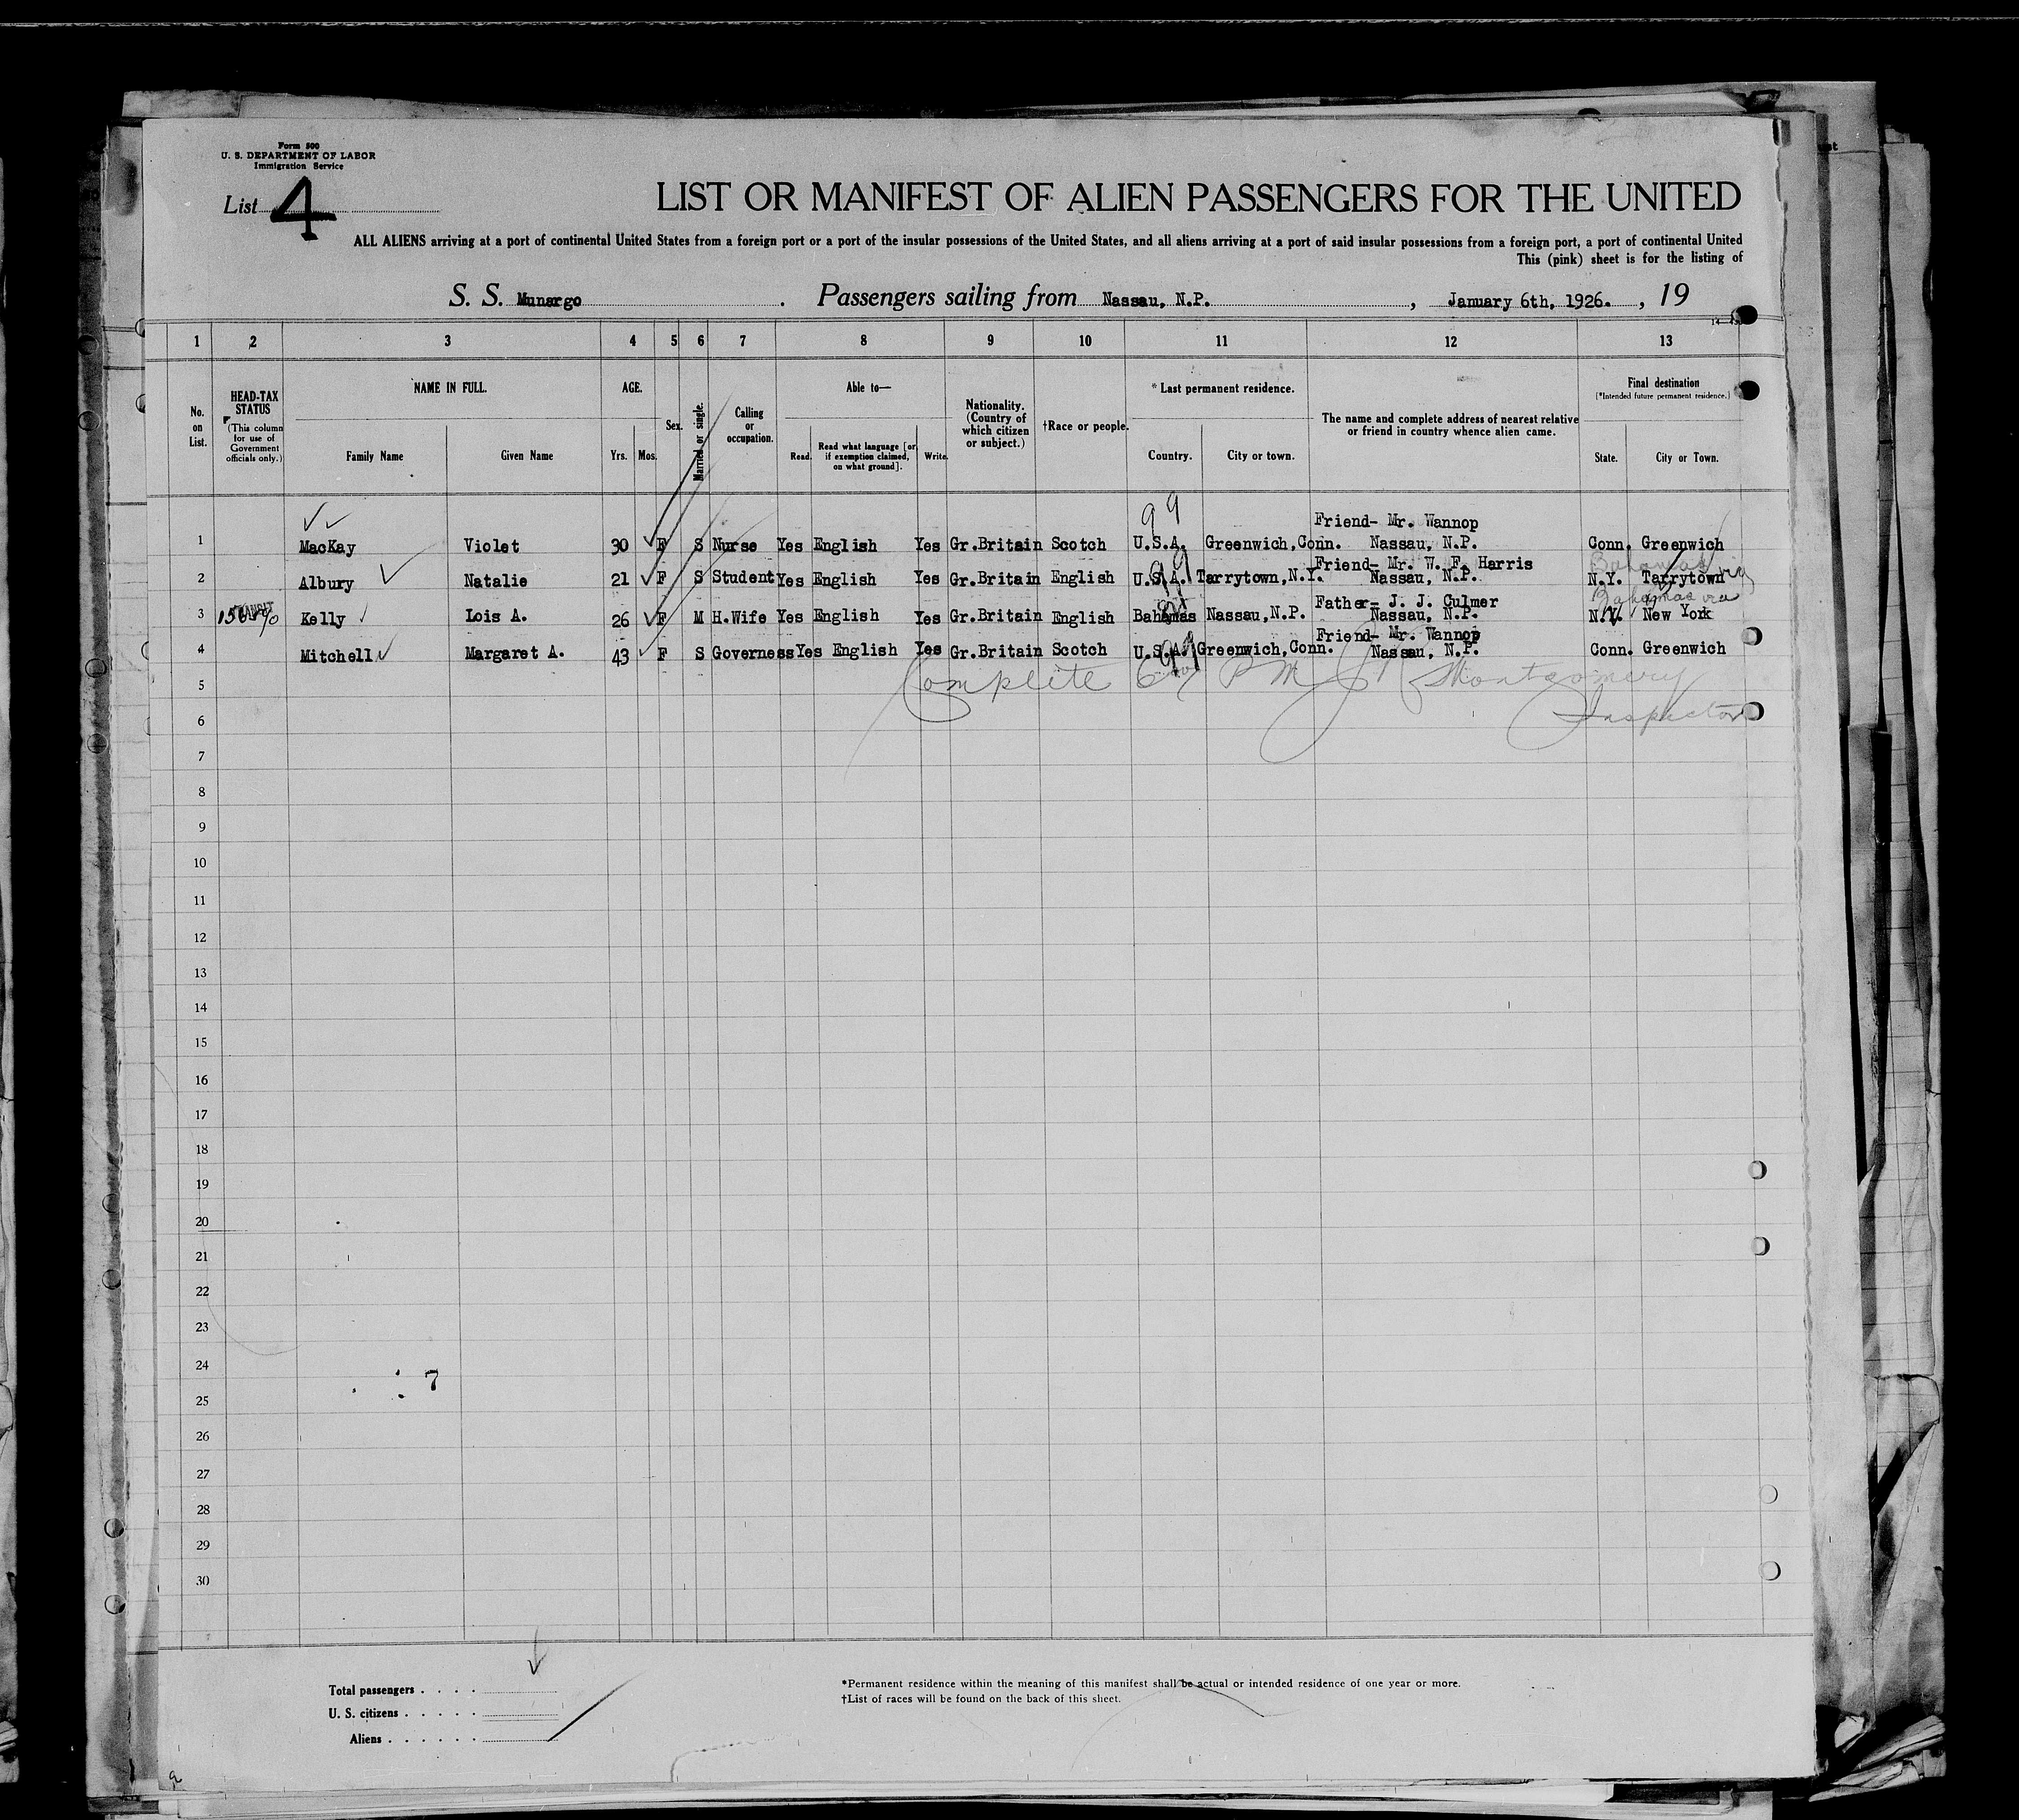 Form 500
U. S. DEPARTMENT OF LABOR
Immigration Service
List 4
LIST OR MANIFEST OF ALIEN PASSENGERS FOR THE UNITED
ALL ALIENS arriving at a port of continental United States from a foreign port or a port of the insular possessions of the United States, and all aliens arriving at a port of said insular possessions from a foreign port, a port of continental United
This (pink) sheet is for the listing of
S. S. Munargo . Passengers sailing from Nassau, N.P. , January 6th, 1926. , 19
1 2 3 4 5 6 7 8 9 10 11 12 13
No. on List.
HEAD-TAX STATUS (This column for use of Government officials only.)
NAME IN FULL.
Family Name
Given Name
AGE.
Yrs. Mos.
Sex.
Married or single.
Calling or occupation.
Able to—
Read. Read what language [or if exemption claimed, on what ground]. Write.
Nationality. (Country of which citizen or subject.)
†Race or people.
* Last permanent residence.
Country. City or town.
The name and complete address of nearest relative or friend in country whence alien came.
Final destination
(*Intended future permanent residence.)
State. City or Town.
99
Friend- Mr. Wannop
1 MacKay Violet 30 F S Nurse Yes English Yes Gr.Britain Scotch U.S.A. Greenwich,Conn. Nassau, N.P. Conn. Greenwich
Friend- Mr. W. F. Harris
Bahamas via
2 Albury Natalie 21 F S Student Yes English Yes Gr.Britain English U.S.A. Tarrytown,N.Y. Nassau, N.P. N.Y. Tarrytown
Father- J. J. Culmer
Bahamas via
3 TRANSIT Kelly Lois A. 26 F M H.Wife Yes English Yes Gr.Britain English Bahamas Nassau,N.P. Nassau, N.P. N.Y. New York
Friend- Mr. Wannop
4 Mitchell Margaret A. 43 F S Governess Yes English Yes Gr.Britain Scotch U.S.A. Greenwich,Conn. Nassau, N.P. Conn. Greenwich
5 Complete PM Montgomery
6 Inspector
7
8
9
10
11
12
13
14
15
16
17
18
19
20
21
22
23
24
7
25
26
27
28
29
30
Total passengers . . . .
U. S. citizens . . . . .
Aliens . . . . . .
*Permanent residence within the meaning of this manifest shall be actual or intended residence of one year or more.
†List of races will be found on the back of this sheet.